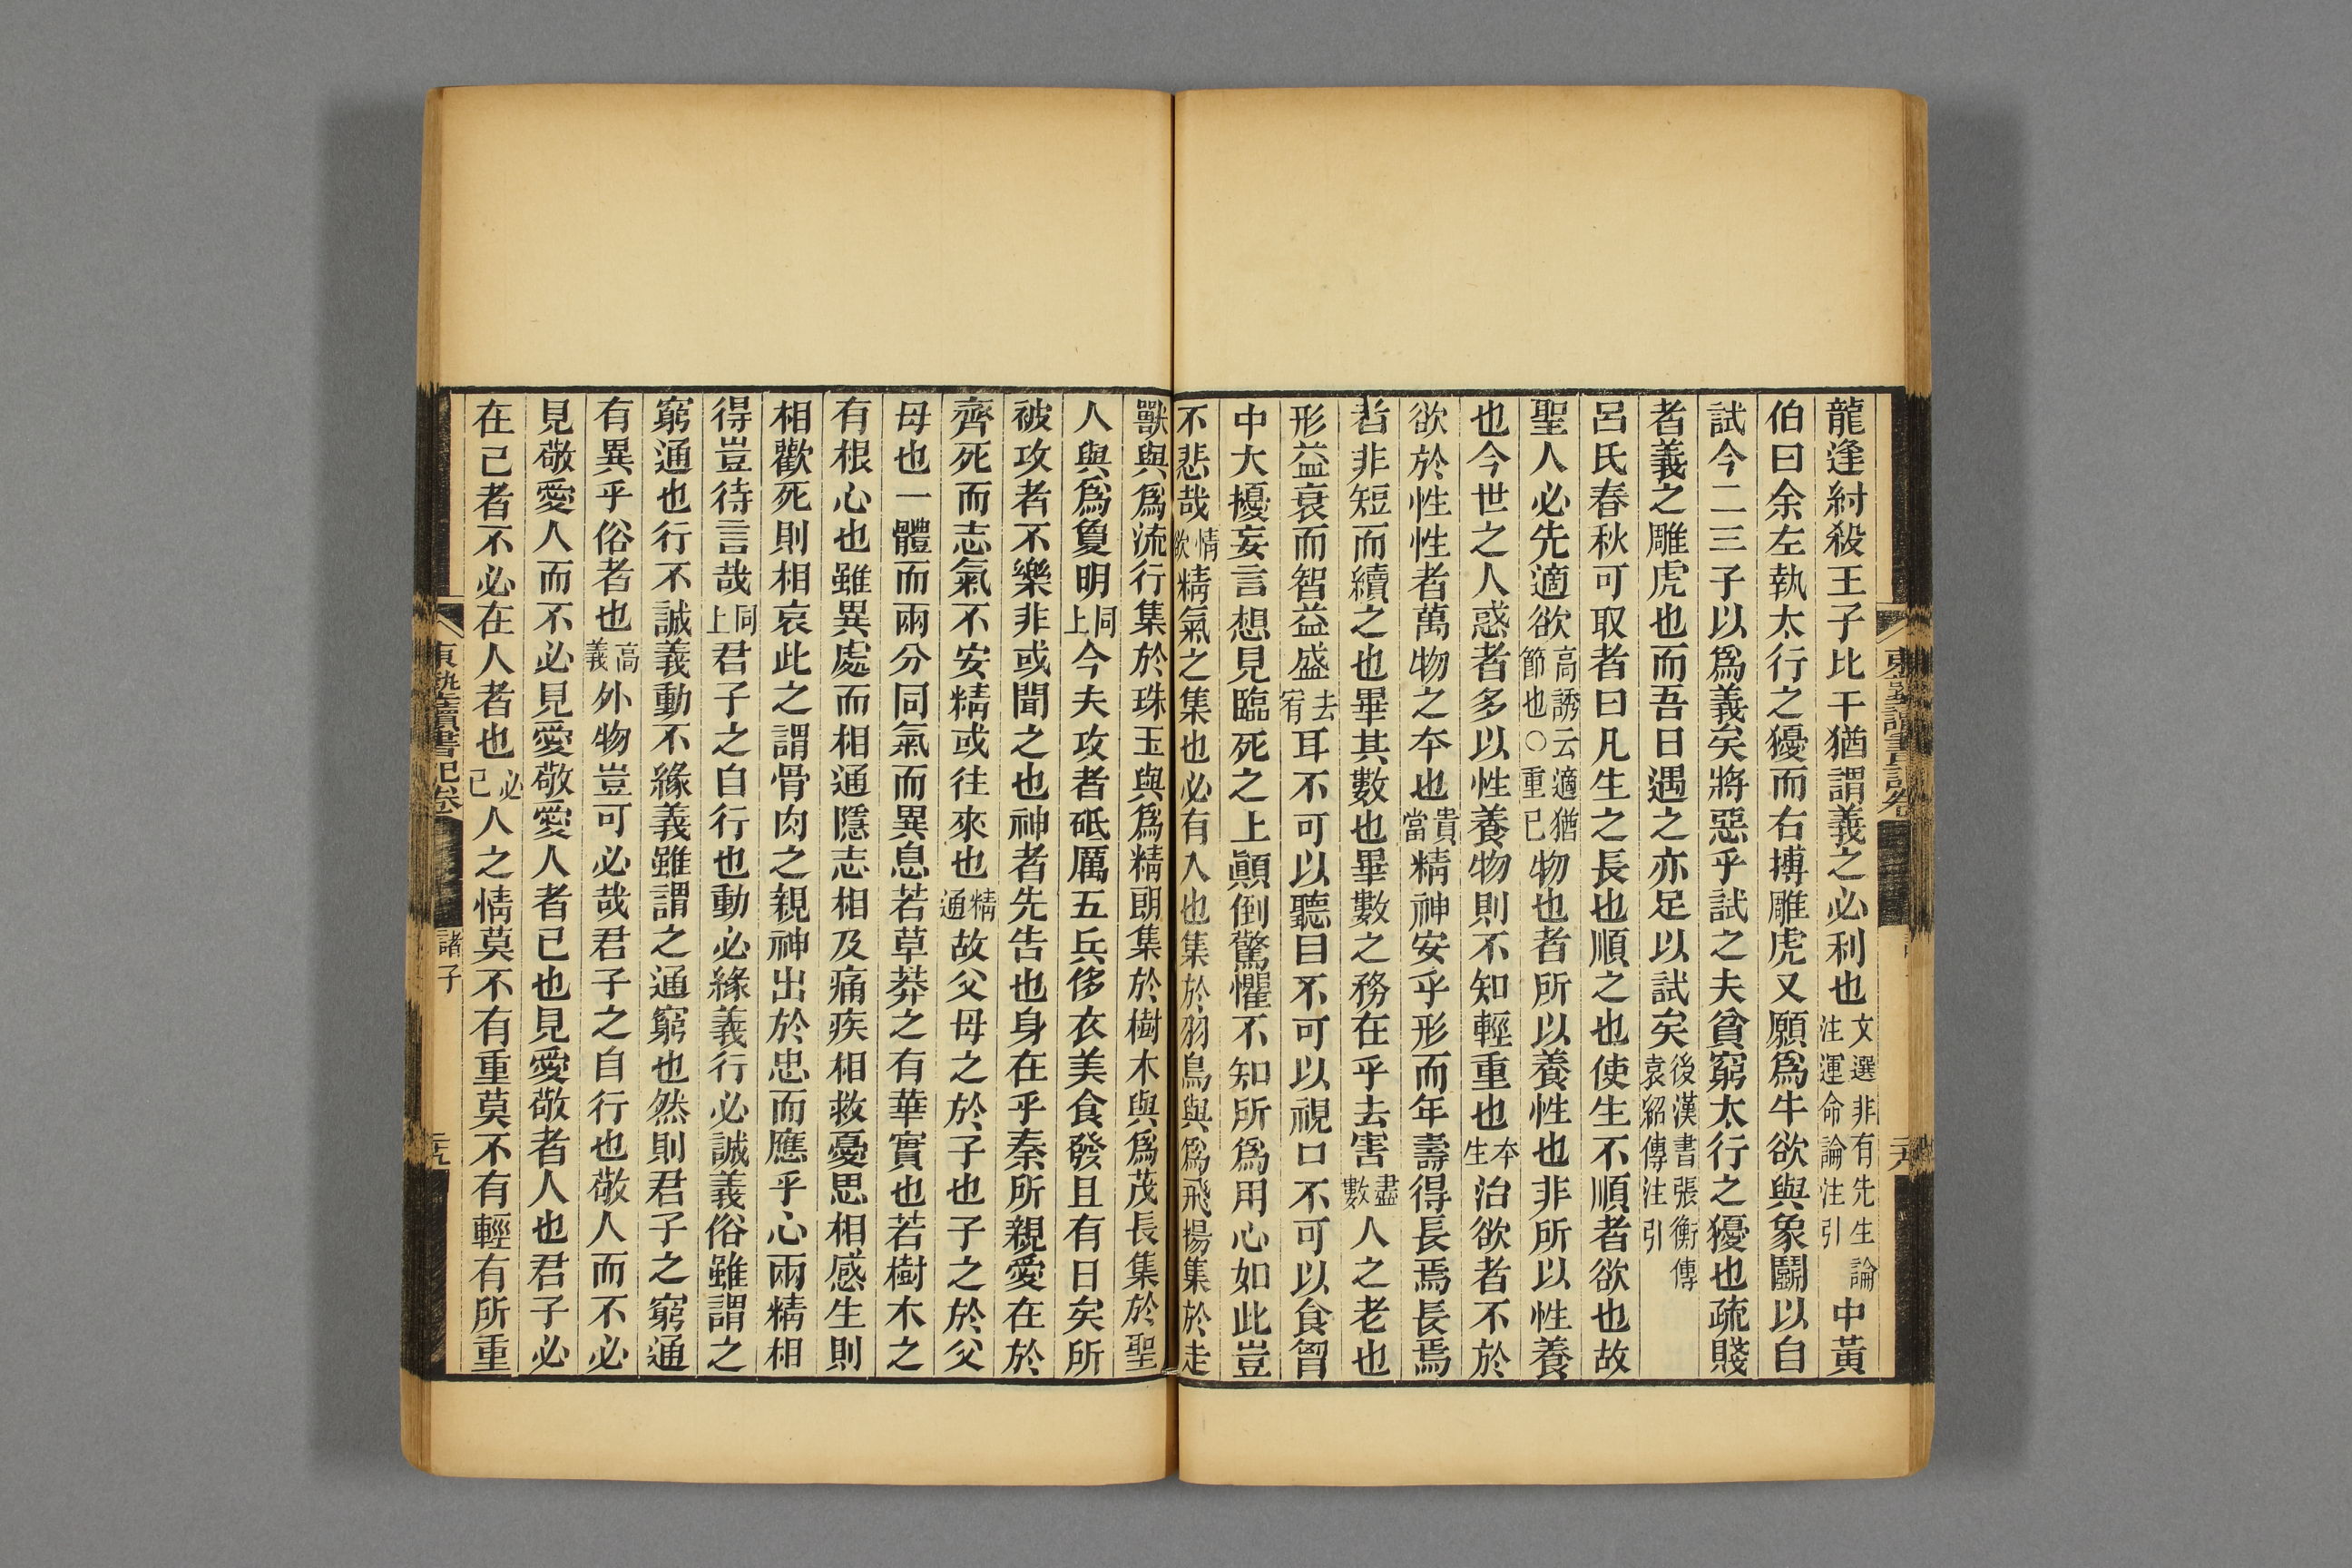 龍逢紂殺王子比干猶謂義之必利也文選非有先生論注運命論注引中黃
伯曰余左執太行之獶而右搏雕虎又願爲牛欲與象鬬以自
試今二三子以爲義矣將惡乎試之夫貧窮太行之獶也疏賤
者義之雕虎也而吾日遇之亦足以試矣後漢書張衡傳袁紹傳注引
呂氏春秋可取者曰凡生之長也順之也使生不順者欲也故
聖人必先適欲高誘云適猶節也○重已物也者所以養性也非所以性養
也今世之人惑者多以性養物則不知輕重也本生治欲者不於
欲於性性者萬物之夲也貴當精神安乎形而年壽得長焉長焉
者非短而續之也畢其數也畢數之務在乎去害盡數人之老也
形益衰而智益盛去宥耳不可以聽目不可以視口不可以食胷
中大擾妄言想見臨死之上顚倒驚懼不知所爲用心如此豈
不悲哉情欲精氣之集也必有入也集於羽鳥與爲飛揚集於走
獸與爲流行集於珠玉與爲精朗集於樹木與爲茂長集於聖
人與爲敻明同上今夫攻者砥厲五兵侈衣美食發且有日矣所
被攻者不樂非或聞之也神者先告也身在乎秦所親愛在於
齊死而志氣不安精或往來也精通故父母之於子也子之於父
母也一體而兩分同氣而異息若草莽之有華實也若樹木之
有根心也雖異處而相通隱志相及痛疾相救憂思相感生則
相歡死則相哀此之謂骨肉之親神出於忠而應乎心兩精相
得豈待言哉同上君子之自行也動必緣義行必誠義俗雖謂之
窮通也行不誠義動不緣義雖謂之通窮也然則君子之窮通
有異乎俗者也高義外物豈可必哉君子之自行也敬人而不必
見敬愛人而不必見愛敬愛人者已也見愛敬者人也君子必
在己者不必在人者也必已人之情莫不有重莫不有輕有所重
東塾讀書記卷
諸子